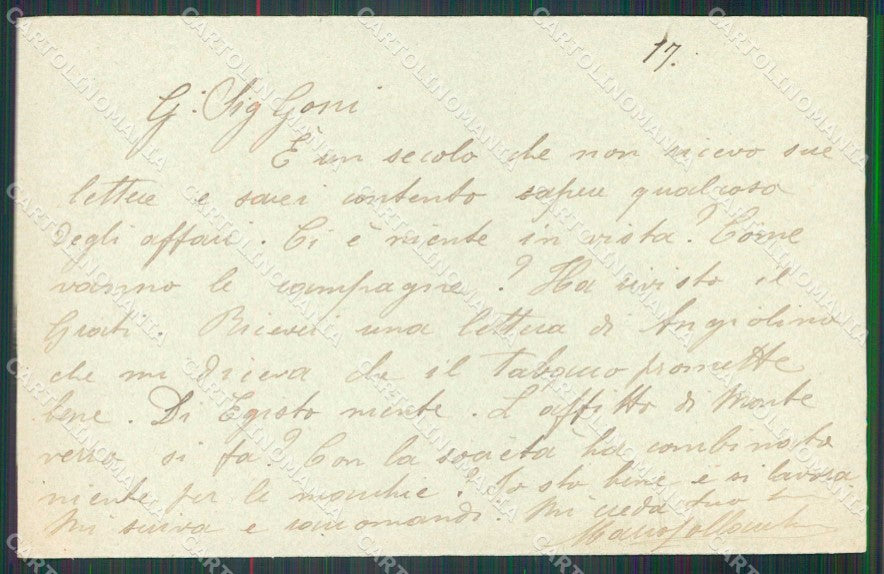 17.
G. Sig Goni
È un secolo che non ricevo sue
lettere e sarei contento sapere qualcosa
degli affari. Ci è niente in vista? Come
vanno le campagne? Ha rivisto il
Grati. Ricevei una lettera di Angiolino
che mi diceva che il tabacco promette
bene. Di Egisto niente. L'affitto di Monte
verro si fa? Con la società ha combinato
niente per le macchie? Io sto bene e si lavora
Mi scriva e comandi. Mi creda suo